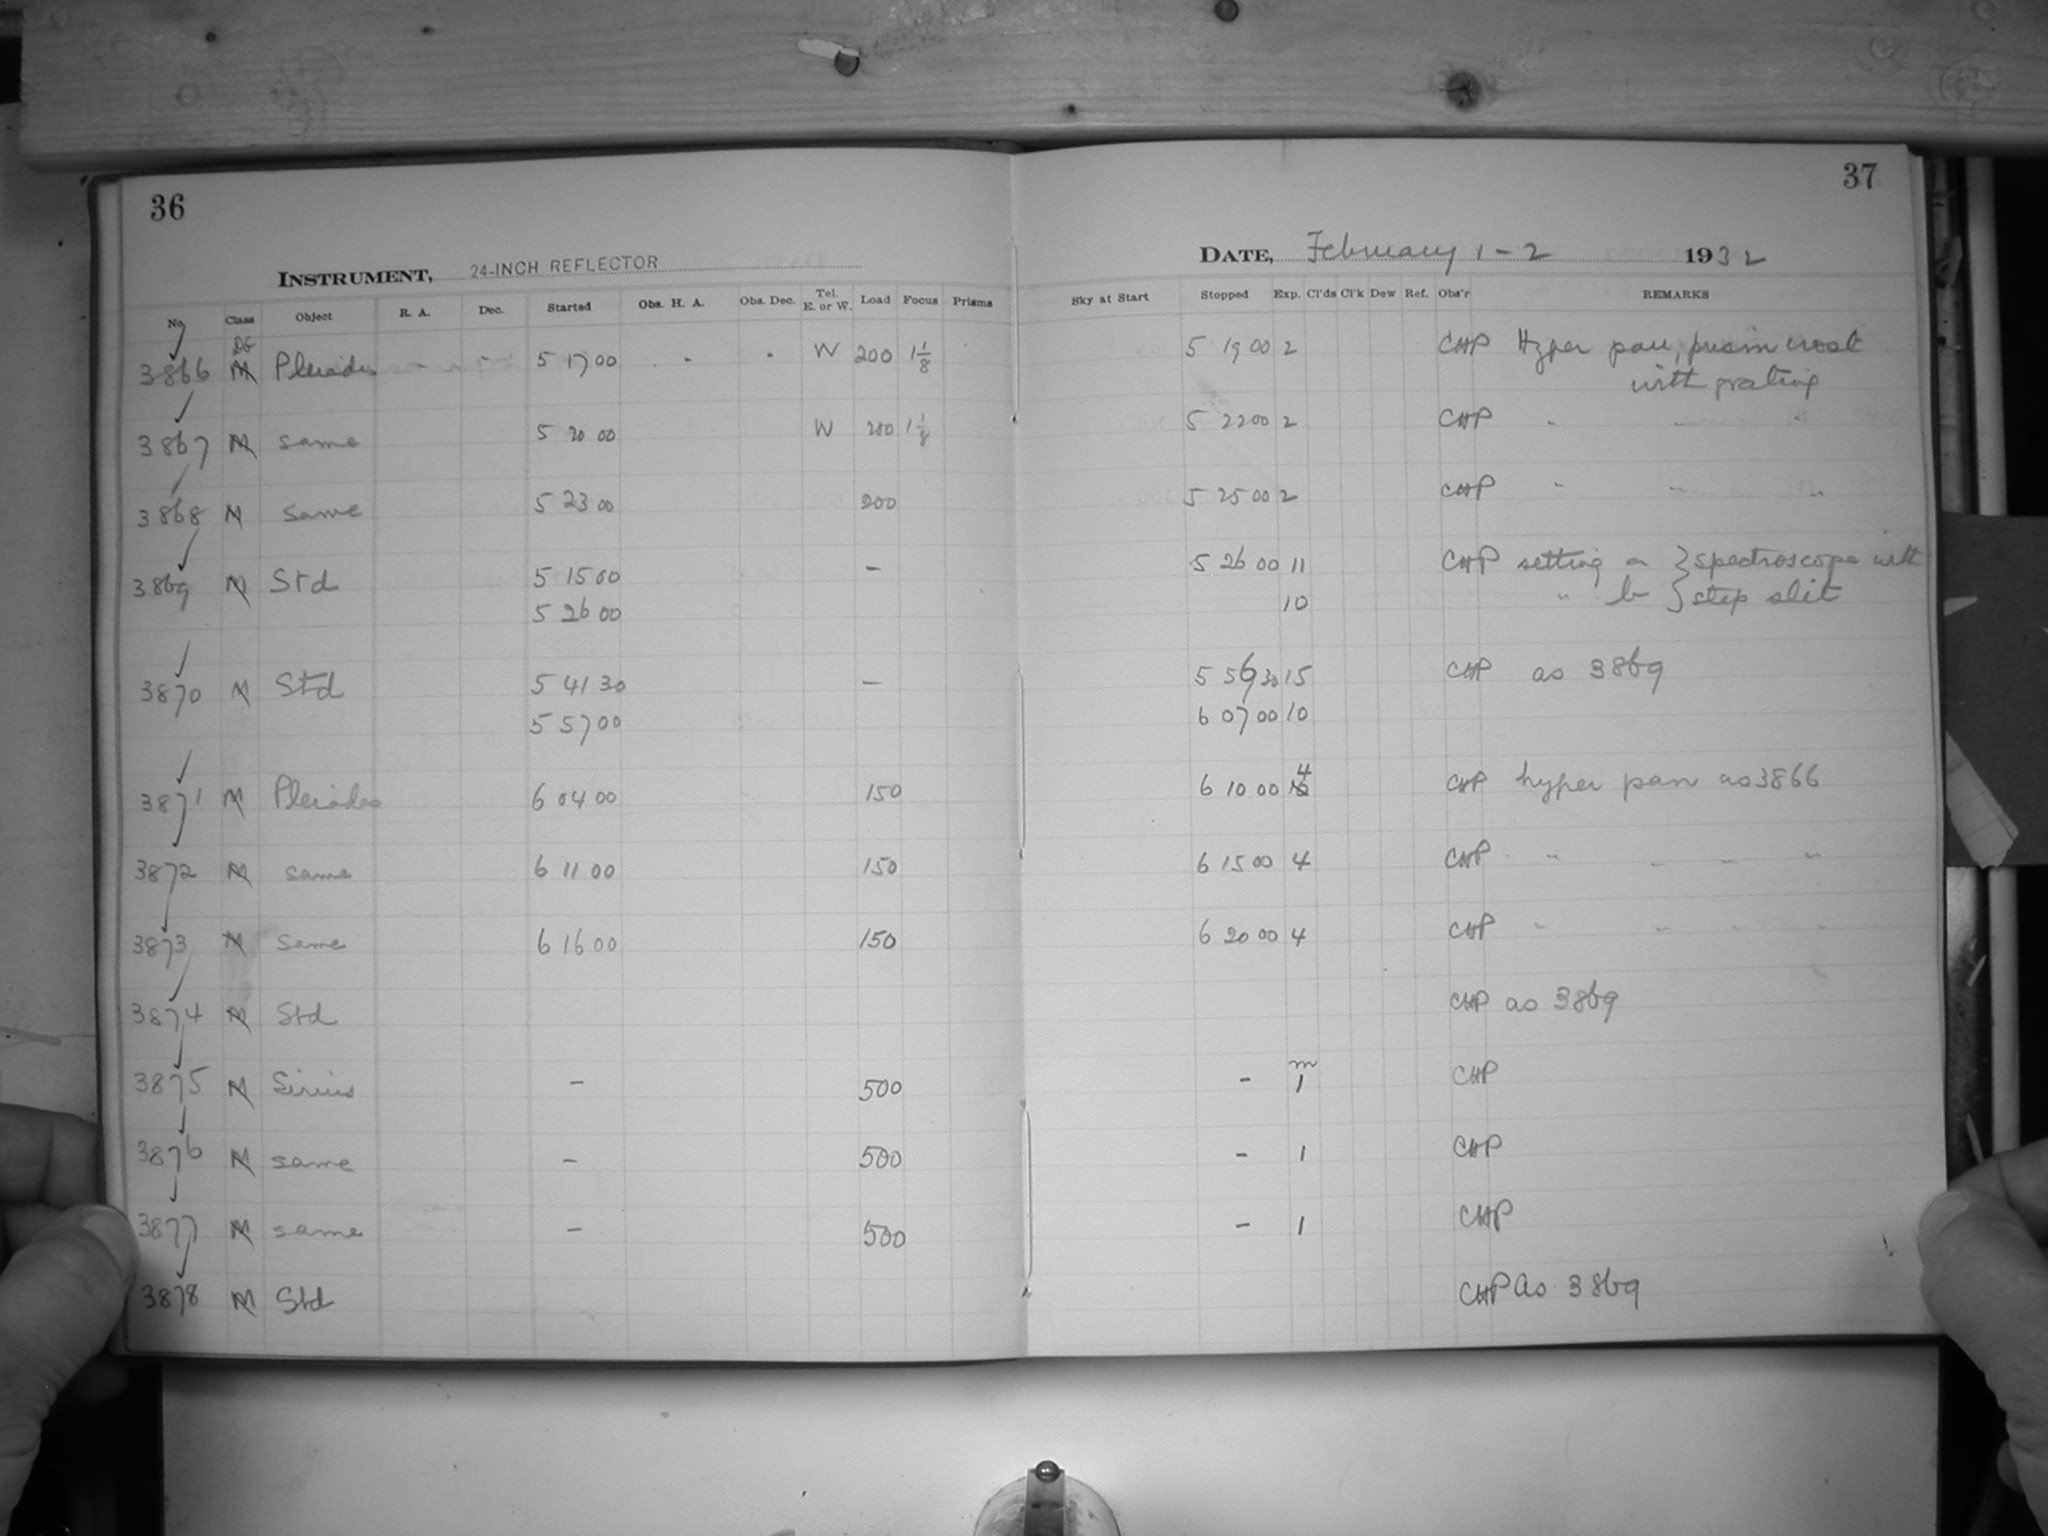 36
37
INSTRUMENT, 24-INCH REFLECTOR
DATE, February 1-2 1932
No. Class Object R. A. Dec. Started Obs. H. A. Obs. Dec. Tel. E. or W. Load Focus Prisms Sky at Start Stopped Exp. Cl'ds Cl'k Dew Ref. Obs'r REMARKS
3866 M Pleiades - - 5 17 00 - - W 200 1 1/8 5 19 00 2 CHP Hyper pan, prism
with grating
3867 M same 5 20 00 W 200 1 1/8 5 22 00 2 CHP " " "
3868 M same 5 23 00 200 5 25 00 2 CHP " " "
3869 M Std 5 15 00 - 5 26 00 11 CHP setting a } spectroscope with
5 26 00 10 " b } step slit
3870 M Std 5 41 30 - 5 56 30 15 CHP as 3869
5 57 00 6 07 00 10
3871 M Pleiades 6 04 00 150 6 10 00 4 CHP hyper pan as 3866
3872 M same 6 11 00 150 6 15 00 4 CHP " " " "
3873 M same 6 16 00 150 6 20 00 4 CHP " " " "
3874 M Std CHP as 3869
3875 M Sirius - 500 - 1m CHP
3876 M same - 500 - 1 CHP
3877 M same - 500 - 1 CHP
3878 M Std CHP as 3869